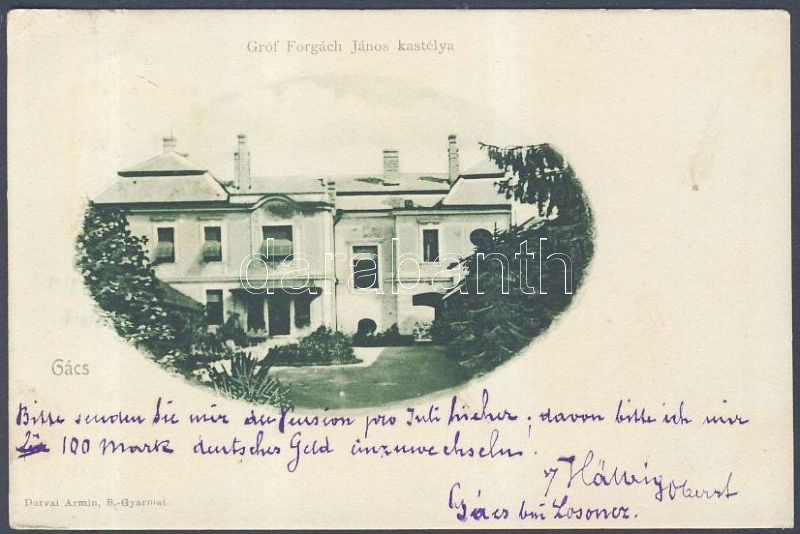 Gróf Forgách János kastélya
darabanth
Gács
Bitte senden Sie mir die Pension pro Juli hieher; davon bitte ich mir
100 Mark deutsches Geld einzuwechseln!
Oberst
Gács bei Losoncz.
Darvai Armin, B.-Gyarmat.